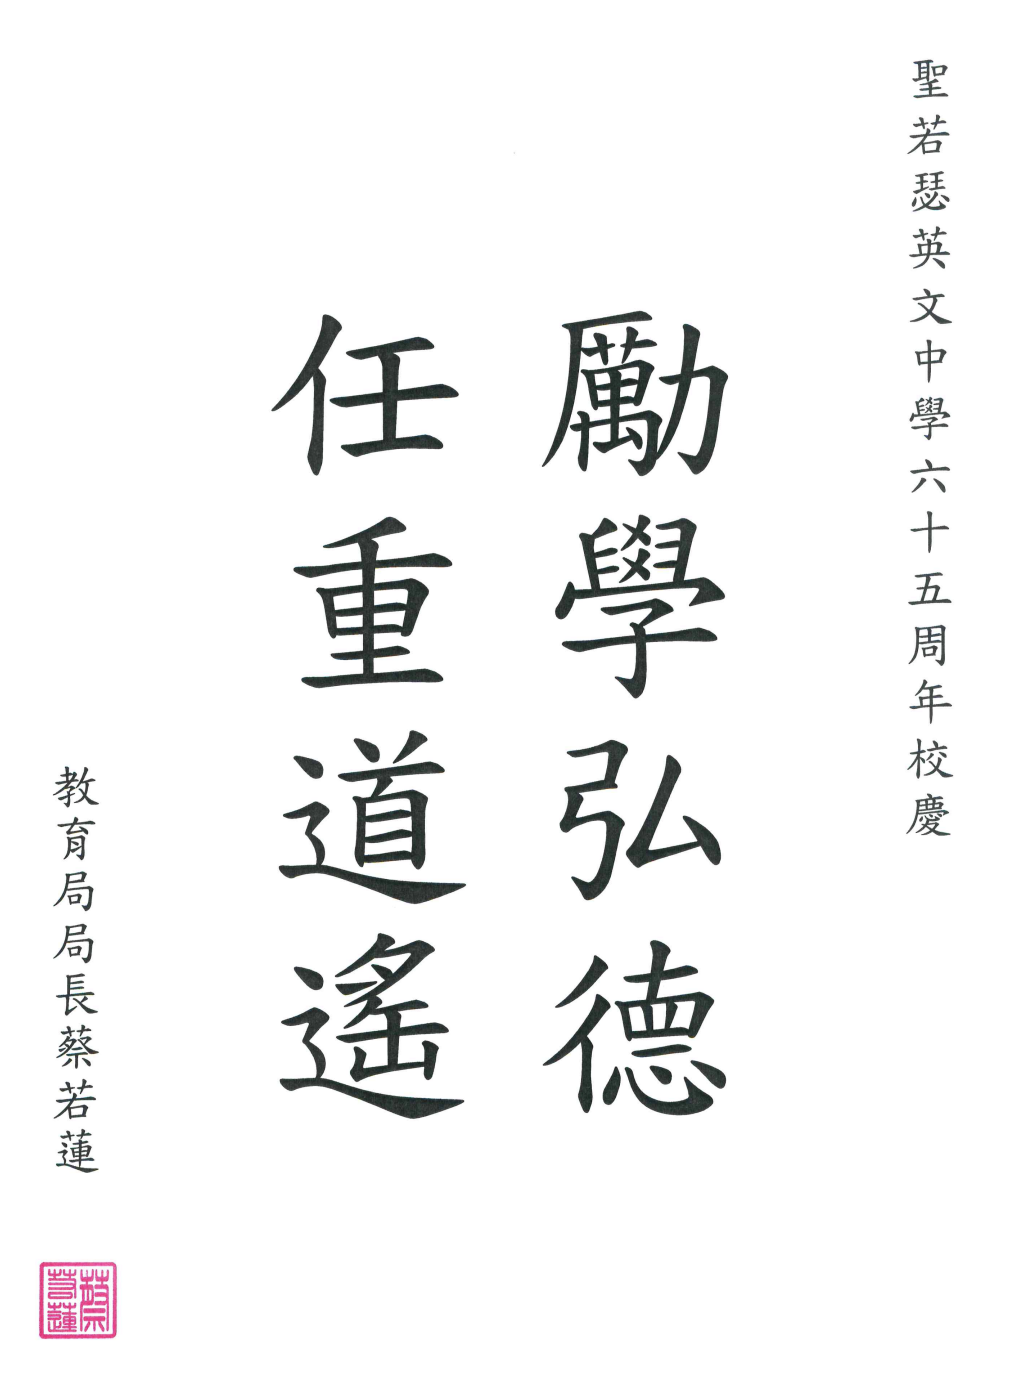 聖若瑟英文中學六十五周年校慶
勵學弘德
任重道遙
教育局局長蔡若蓮
蔡若蓮